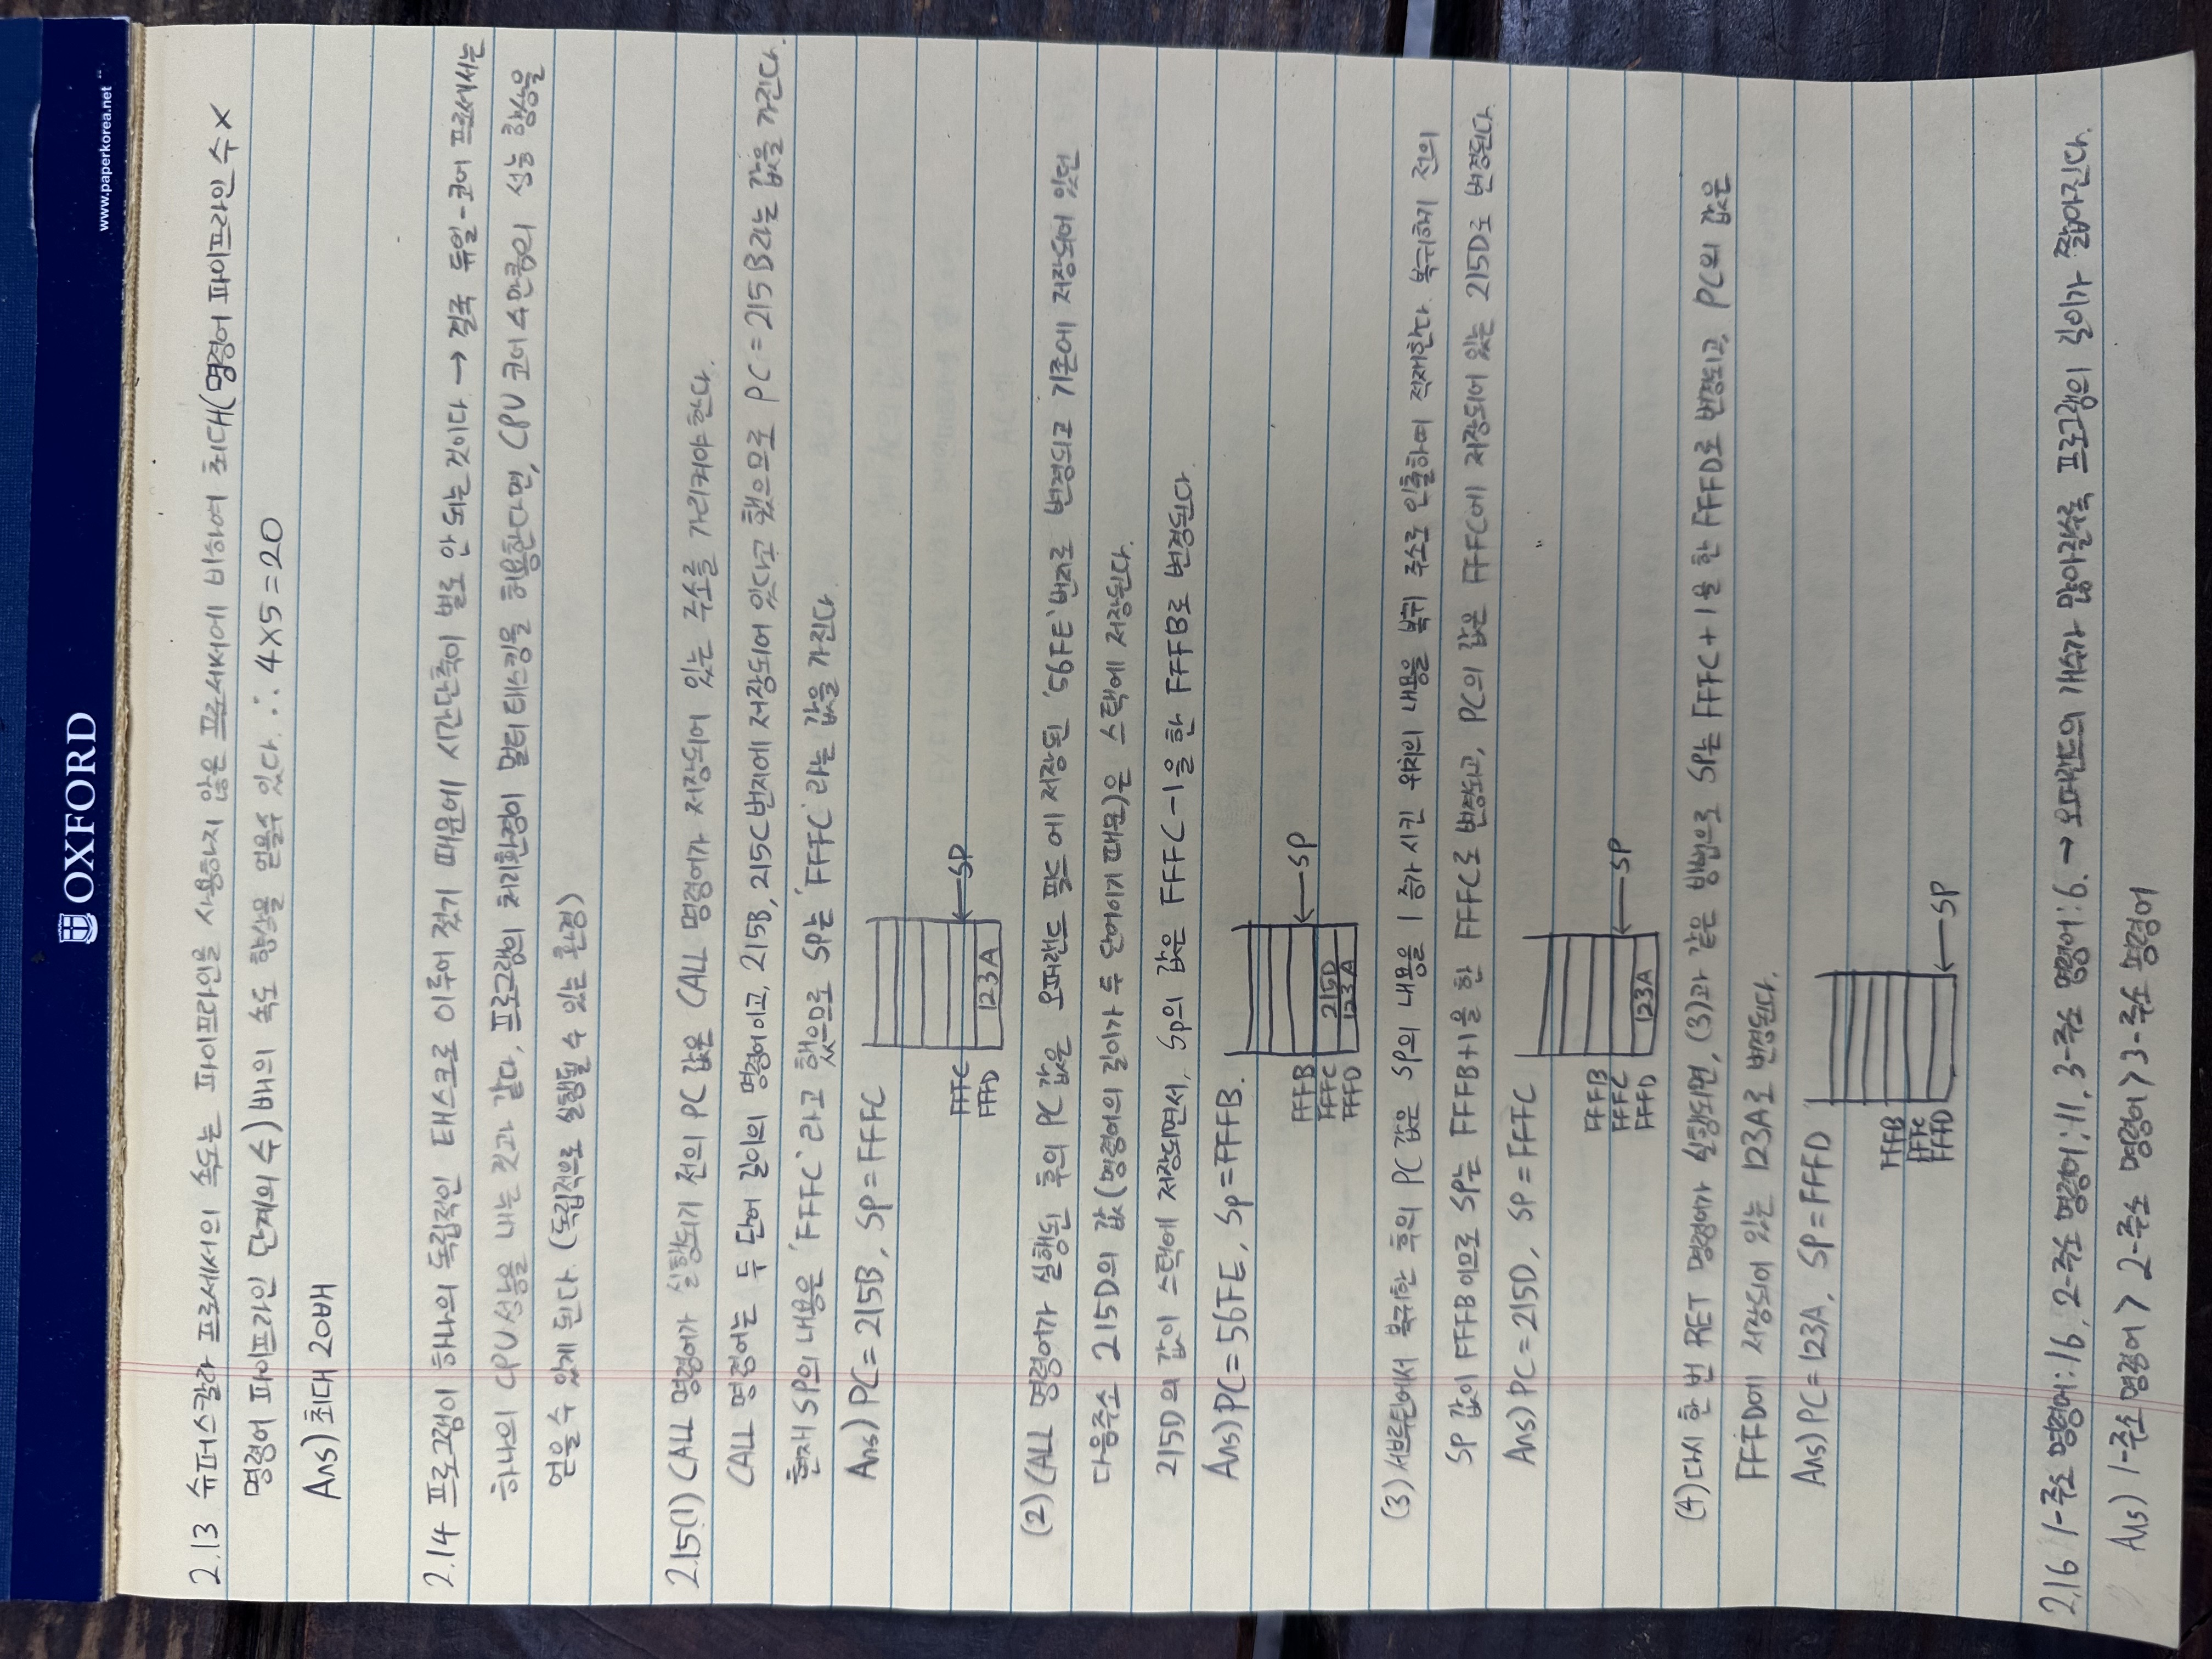 OXFORD
www.paperkorea.net
2.13 슈퍼스칼라 프로세서의 속도는 파이프라인을 사용하지 않은 프로세서에 비하여 최대(명령어 파이프라인 수×
명령어 파이프라인 단계의 수)배의 속도 향상을 얻을수 있다. ∴ 4×5=20
Ans) 최대 20배
2.14 프로그램이 하나의 독립적인 태스크로 이루어 졌기 때문에 시간단축이 별로 안 되는 것이다. → 결국 듀얼-코어 프로세서는
하나의 CPU성능을 내는 것과 같다. 프로그램의 처리환경이 멀티태스킹을 허용한다면, CPU 코어 수만큼의 성능 향상을
얻을 수 있게 된다. (독립적으로 실행될 수 있는 환경)
2.15(1) CALL 명령어가 실행되기 전의 PC 값은 CALL 명령어가 저장되어 있는 주소를 가리켜야 한다.
CALL 명령어는 두 단어 길이의 명령어이고, 215B, 215C 번지에 저장되어 있다고 했으므로 PC = 215B라는 값을 가진다.
현재 SP의 내용은 'FFFC'라고 했으므로 SP는 'FFFC'라는 값을 가진다.
Ans) PC = 215B, SP = FFFC
FFFC ←SP
FFFD 123A
(2) CALL 명령어가 실행된 후의 PC 값은 오퍼랜드 필드에 저장된 '56FE'번지로 변경되고 기존에 저장되어 있던
다음주소 215D의 값(명령어의 길이가 두 단어이기 때문)은 스택에 저장된다.
215D의 값이 스택에 저장되면서, SP의 값은 FFFC-1을 한 FFFB로 변경된다.
Ans) PC = 56FE, SP = FFFB.
FFFB ←SP
FFFC 215D
FFFD 123A
(3) 서브루틴에서 복귀한 후의 PC 값은 SP의 내용을 1 증가 시킨 위치의 내용을 복귀 주소로 인출하여 적재한다. 복귀하기 전의
SP 값이 FFFB이므로 SP는 FFFB+1을 한 FFFC로 변경되고, PC의 값은 FFFC에 저장되어 있는 215D로 변경된다.
Ans) PC = 215D, SP = FFFC
FFFB
FFFC ←SP
FFFD 123A
(4) 다시 한 번 RET 명령어가 실행되면, (3)과 같은 방법으로 SP는 FFFC+1을 한 FFFD로 변경되고, PC의 값은
FFFD에 저장되어 있는 123A로 변경된다.
Ans) PC = 123A, SP = FFFD
FFFB
FFFC
FFFD ←SP
2.16 1-주소 명령어: 16, 2-주소 명령어: 11, 3-주소 명령어: 6. → 오퍼랜드의 개수가 많아질수록 프로그램의 길이가 짧아진다.
Ans) 1-주소 명령어 > 2-주소 명령어 > 3-주소 명령어